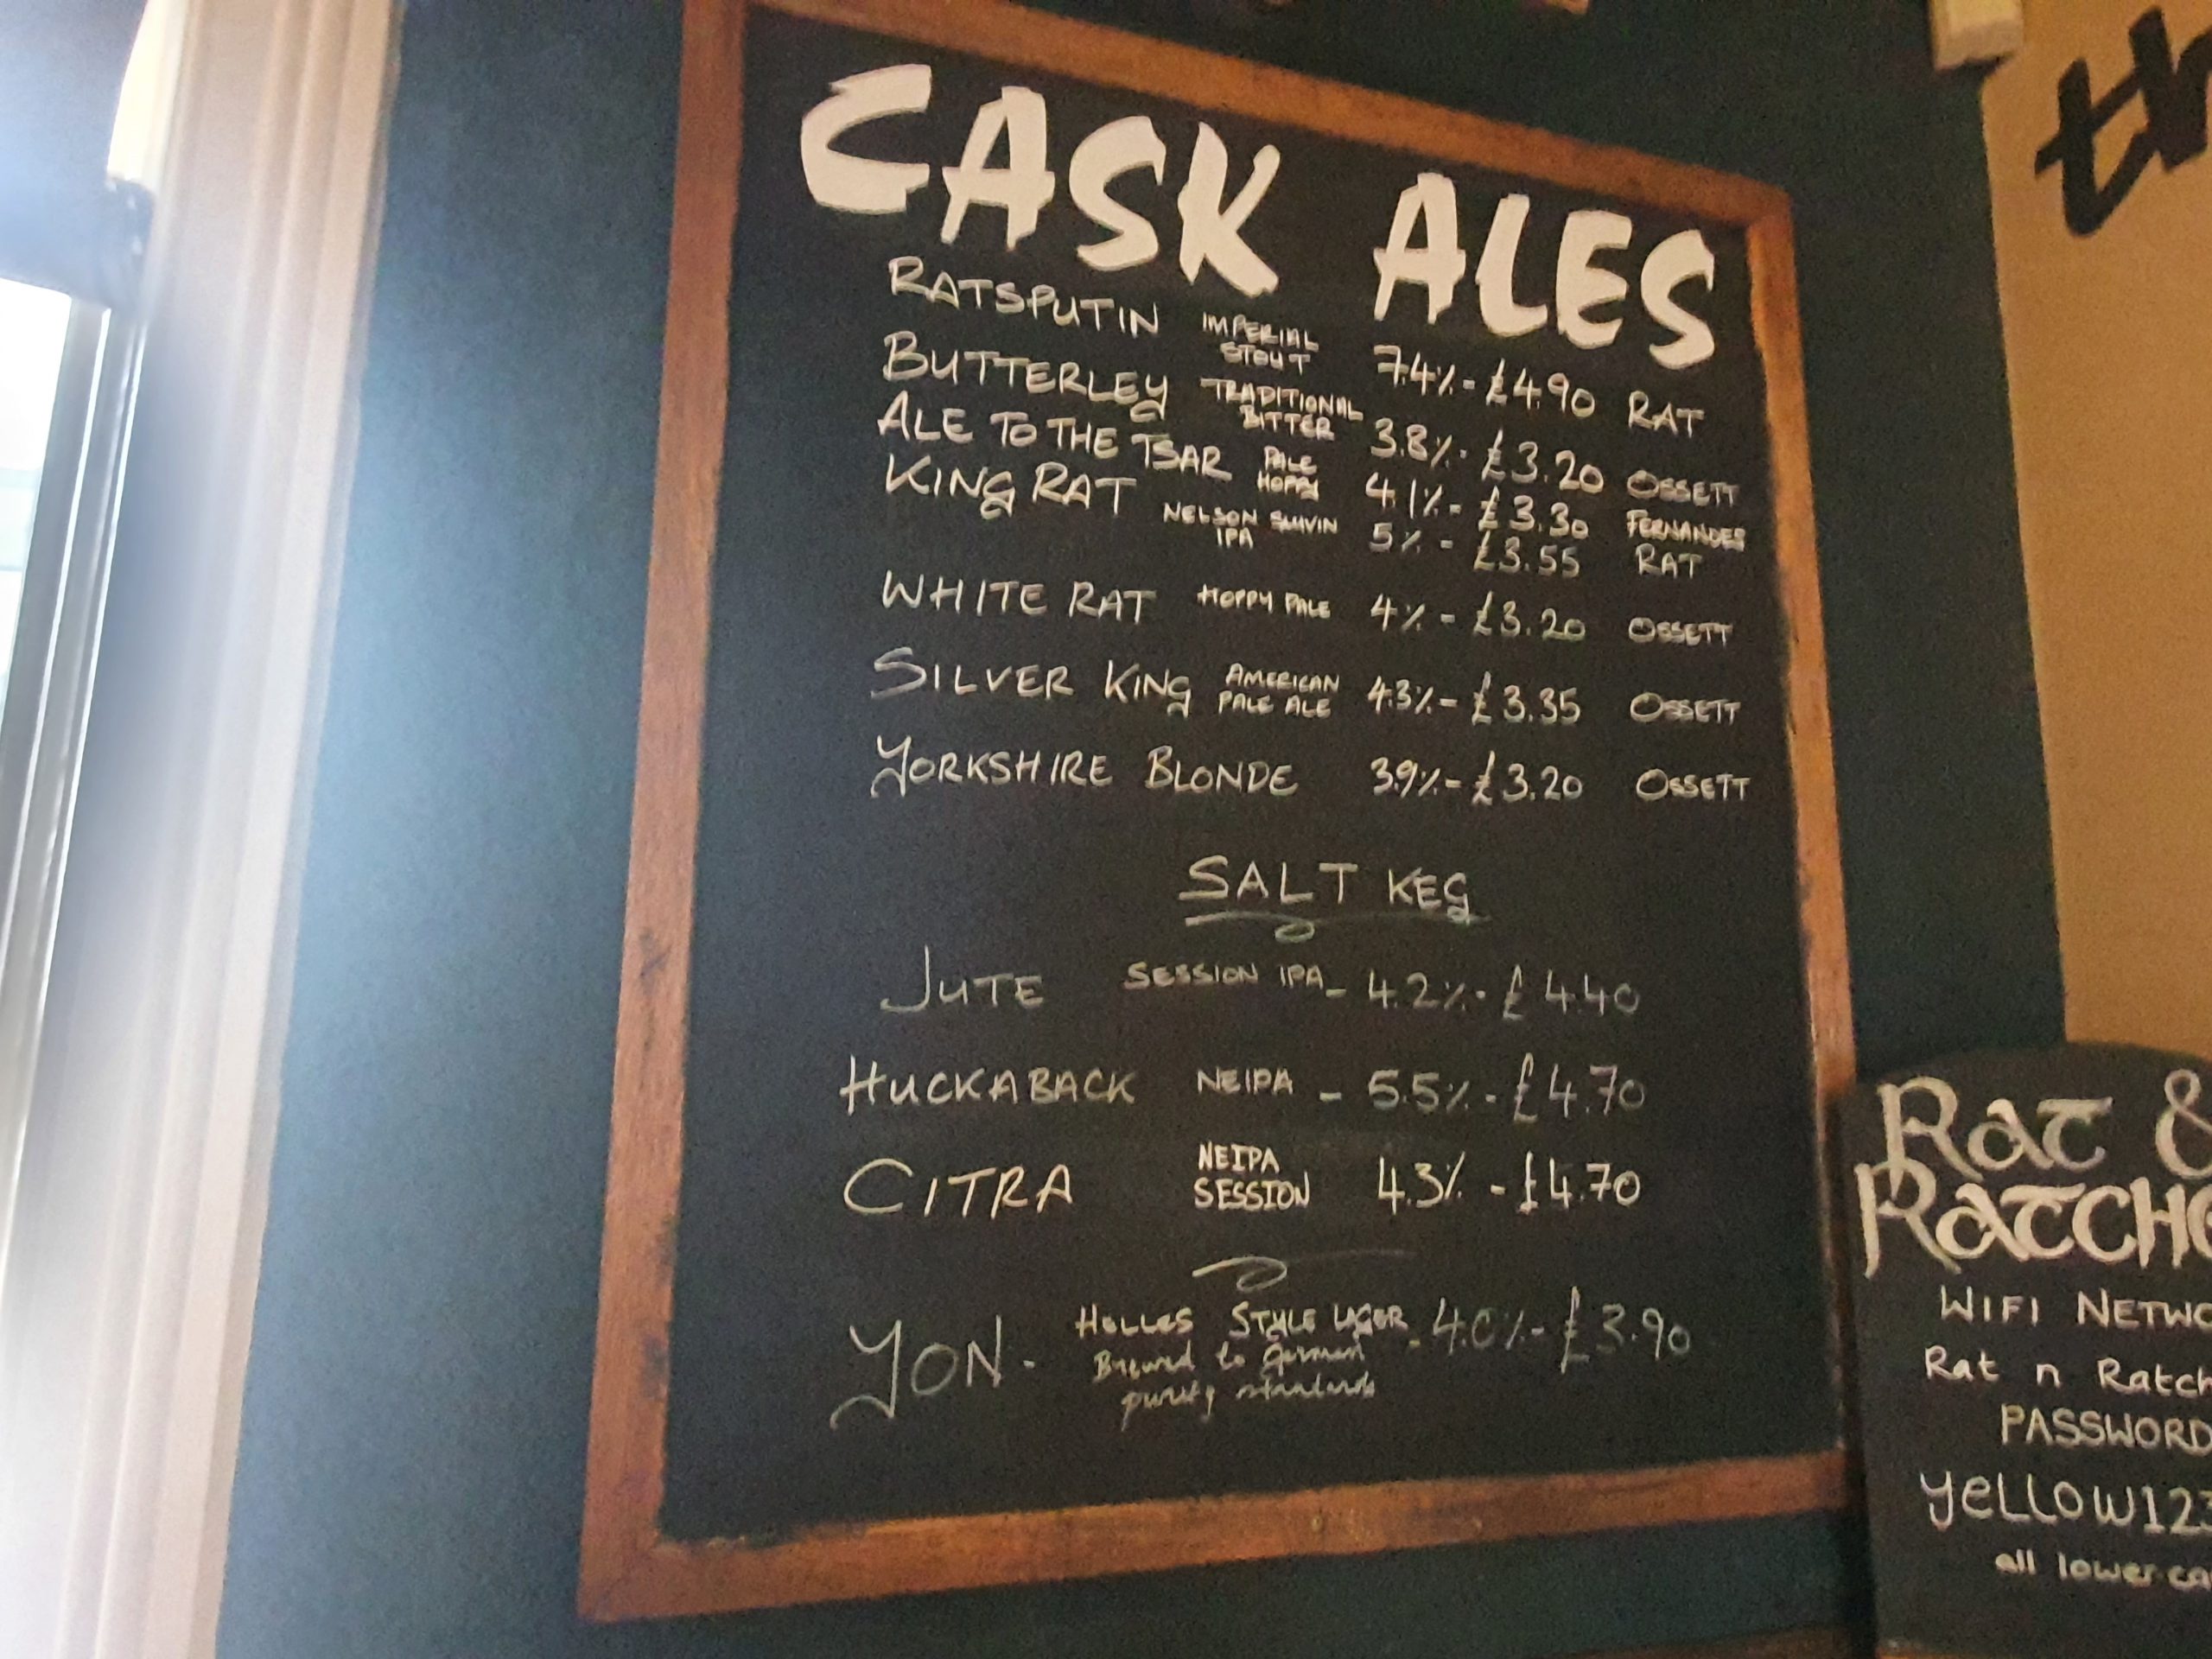 CASK ALES
RATSPUTIN IMPERIAL STOUT 7.4% - £4.90 RAT
BUTTERLEY TRADITIONAL BITTER 3.8% - £3.20 OSSETT
ALE TO THE TSAR PALE HOPPY 4.1% - £3.30 FERNANDES
KING RAT NELSON SAUVIN IPA 5% - £3.55 RAT
WHITE RAT HOPPY PALE 4% - £3.20 OSSETT
SILVER KING AMERICAN PALE ALE 4.3% - £3.35 OSSETT
YORKSHIRE BLONDE 3.9% - £3.20 OSSETT
SALT KEG
JUTE SESSION IPA - 4.2% - £4.40
HUCKABACK NEIPA - 5.5% - £4.70
CITRA NEIPA SESSION 4.3% - £4.70
YON - HELLES STYLE LAGER - 4.0% - £3.90
Brewed to German
purity standards
th
RAT &
RATCH
WIFI NETWO
Rat n Ratch
PASSWORD
yellow123
all lower ca